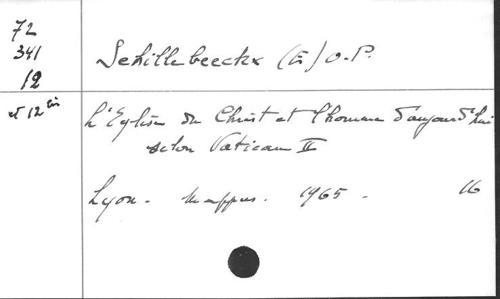 72
341
12
Schillebeeckx (E) O.P.
et 12 bis
L'Eglise du Christ et l'homme d'aujourd'hui
selon Vatican II
Lyon - Mappus. 1965 - 16